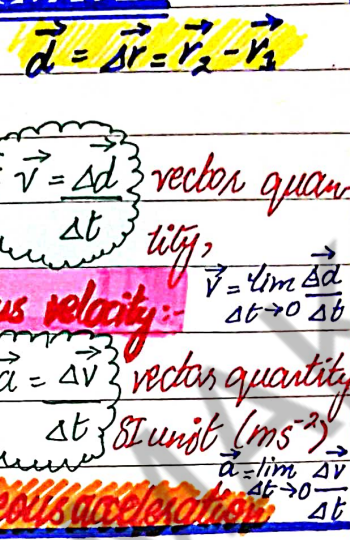 d⃗ = Δr⃗ = r⃗₂ - r⃗₁
v⃗ = Δd⃗/Δt vector quan
tity,
us velocity:-
v⃗ = lim Δt→0 Δd⃗/Δt
a⃗ = Δv⃗/Δt vector quantity
SI unit (ms⁻²)
a⃗ = lim Δt→0 Δv⃗/Δt
eous acceleration